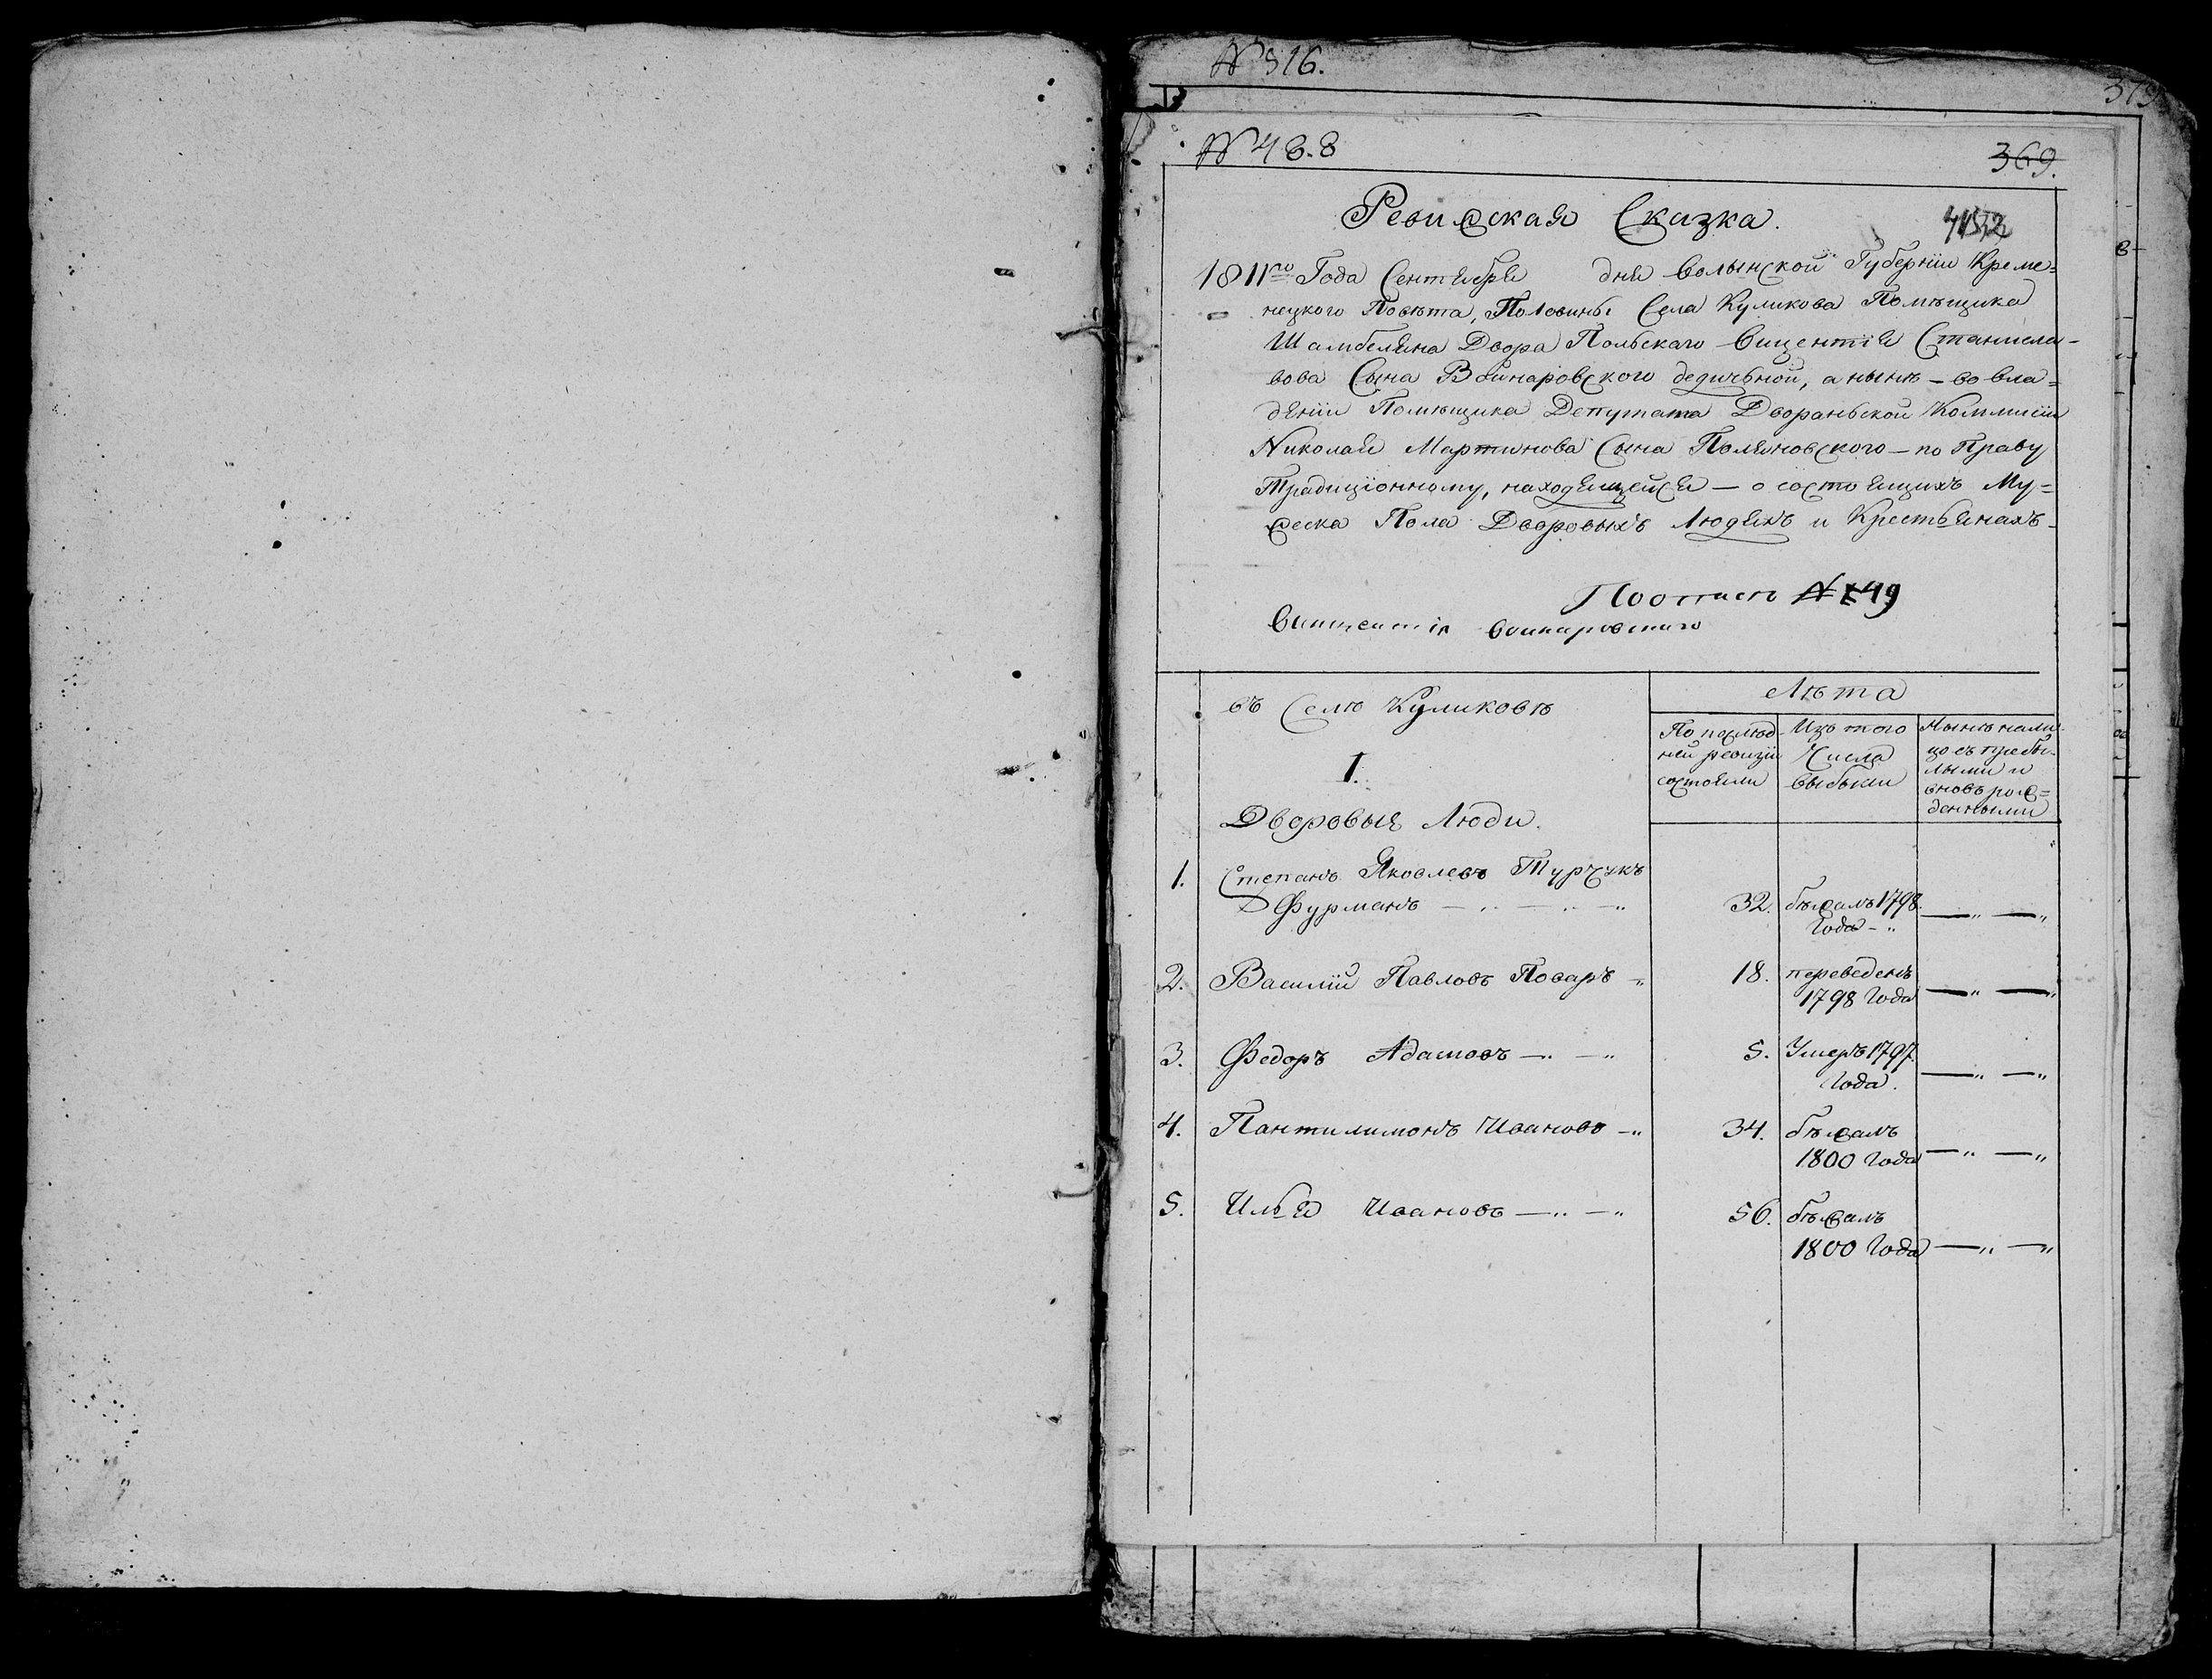 № 316.
№ 488
369.
Ревизская Сказка.
1811го Года Сентября дня Волынской Губернiи Креме=
нецкого Повѣта, Половины Села Куликова Помѣщика
Шамбеляна Двора Польскаго Вицентiя Станисла-
вова Сына Войнаровского дедичьной, а нынѣ – во вла=
дѣнiи Помѣщика Депутата Дворанской Коммисiи
Николая Мартинова Сына Поляновского – по Праву
Традицiонному, находящейся – о состоящихъ Му=
жеска Пола Дворовыхъ Людяхъ и Крестьянахъ
№ 149
Винцентiя Войнаровскаго
въ Селѣ Куликовѣ
Лѣта
По послѣд-
ней ревизiи
состояли
Изъ того
Числа
выбыли
Нынѣ нали-
цо съ прибы-
лыми и
вновь рож=
денными
1.
Дворовыя Люди.
1. Степанъ Яковлевъ Турчукъ
Фурманъ — „ — „ — „ 32. бѣжалъ 1798.
Года - „ — „ — „
2. Василiй Павловъ Поваръ -„ 18. переведенъ
1798 Года — „ — „
3. Федоръ Адамовъ — „ — „ 5. Умеръ 1797
Года. — „ — „
4. Пантилимонъ Ивановъ -„ 34. бѣжалъ
1800 Года — „ — „
5. Илья Ивановъ — „ — „ 56. бѣжалъ
1800 Года — „ — „